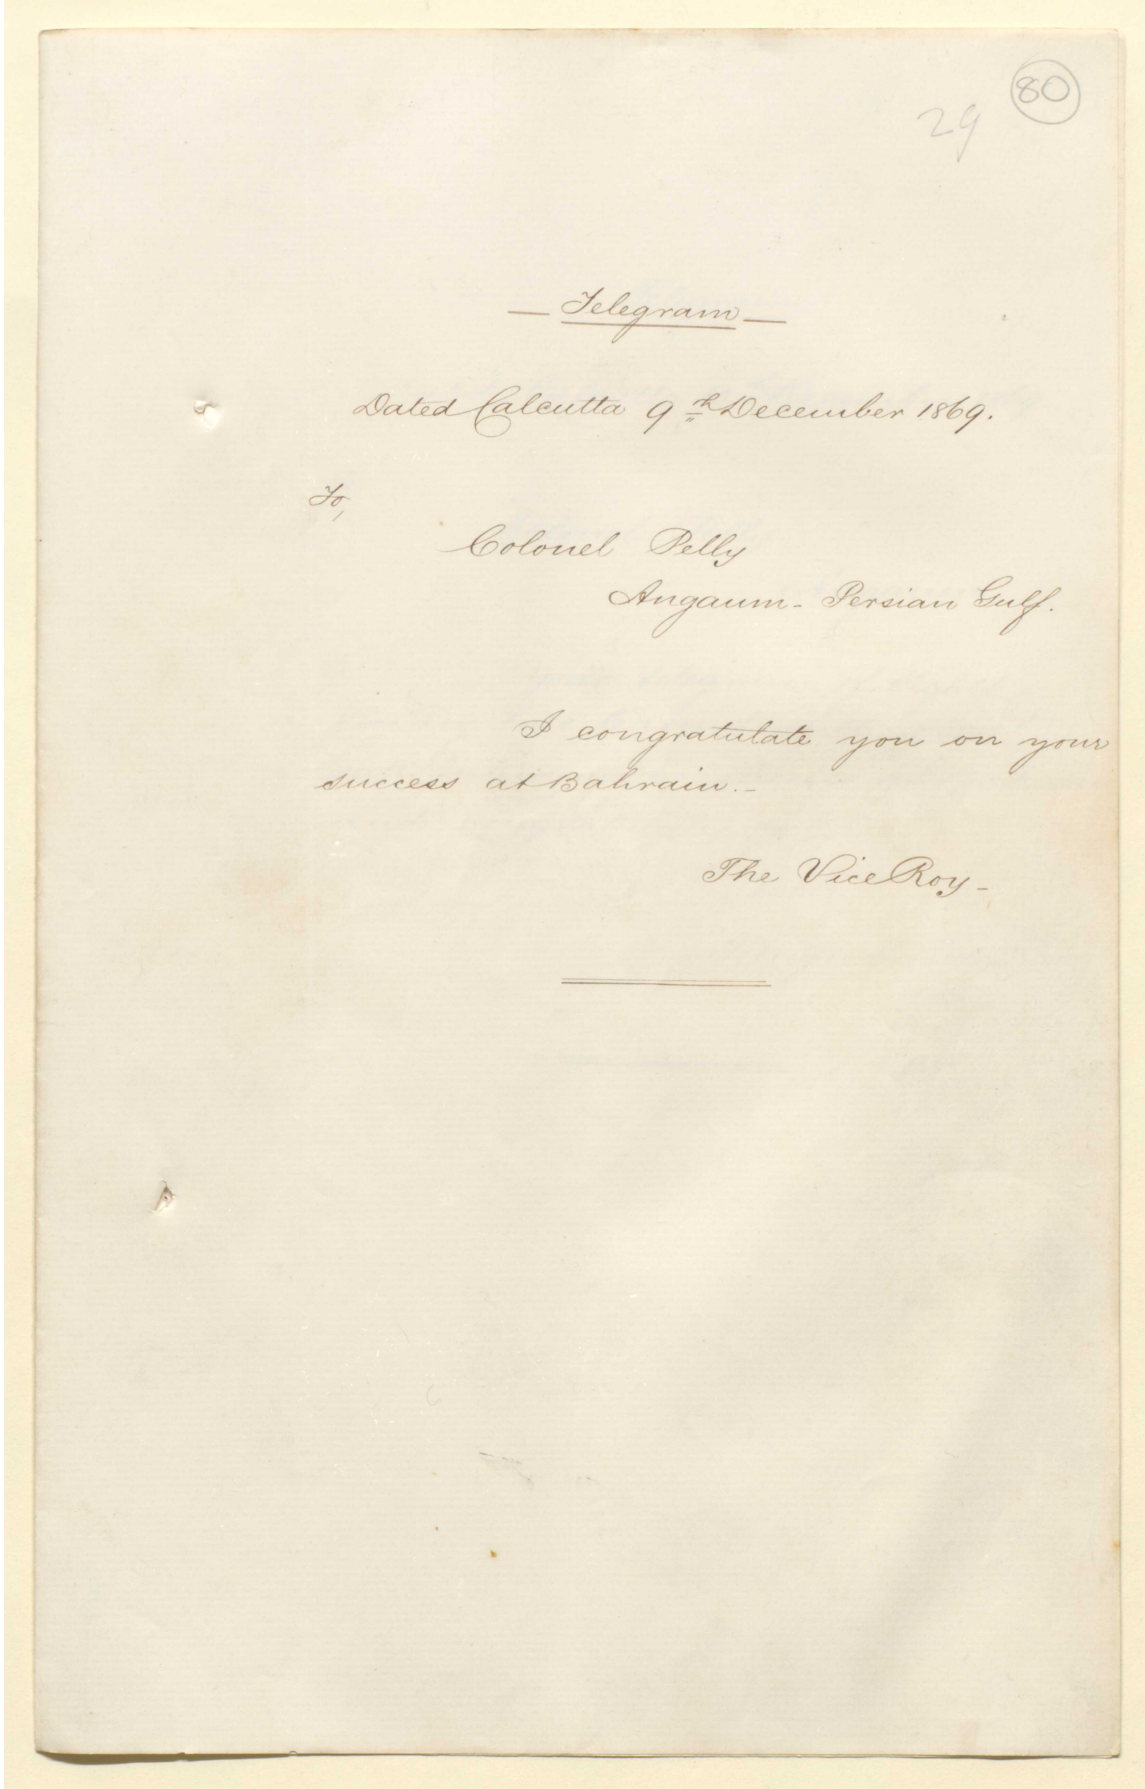 80
29
— Telegram —
Dated Calcutta 9th December 1869.
To,
Colonel Pelly
Angaum - Persian Gulf.
I congratulate you on your
success at Bahrain.–
The ViceRoy –